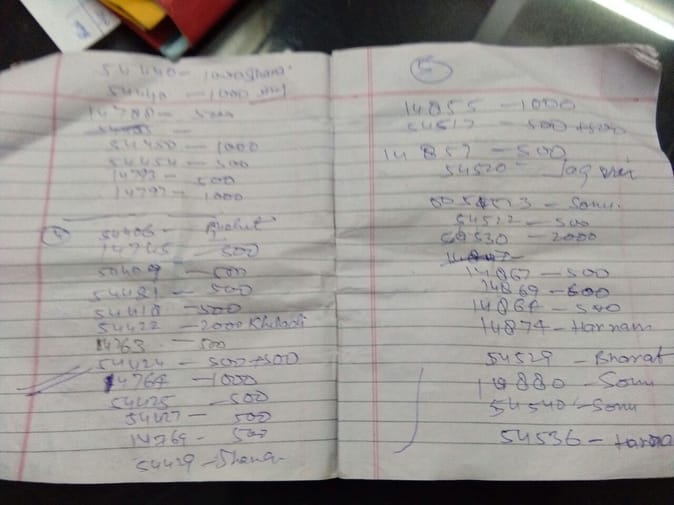 54440 - 1000
54448 - 1000
14788 - 5000
54450 - 1000
54454 - 500
14793 - 500
14797 - 1000
54406 -
14765 - 500
54409 - 500
54431 - 500
54418 - 500
54422 - 2000 Khiladi
14763 - 500
54424 - 500+500
14764 - 1000
54425 - 500
54427 - 500
14769 - 500
54429 -
5
14855 - 1000
54517 - 500+500
14857 - 500
54520 -
- Sonu.
54522 - 500
54530 - 2000
14847 -
14867 - 500
14869 - 500
14864 - 500
14874 - Harnam
54529 - Bharat
14880 - Sonu
54540 - Sonu
54536 -